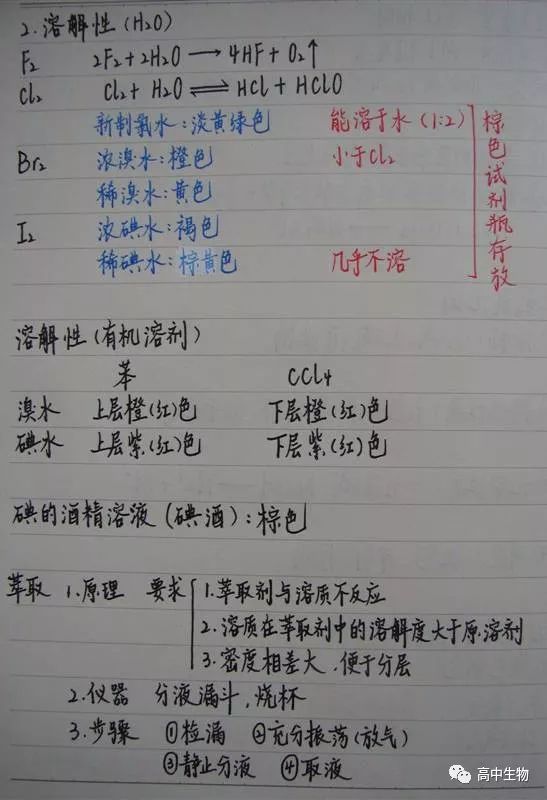 2.溶解性(H2O)
F2 2F2+2H2O⟶4HF+O2↑
Cl2 Cl2+H2O⇌HCl+HClO
新制氯水:淡黄绿色 能溶于水(1:2)
Br2 浓溴水:橙色 小于Cl2
稀溴水:黄色
I2 浓碘水:褐色
稀碘水:棕黄色 几乎不溶
棕色试剂瓶存放
溶解性(有机溶剂)
苯 CCl4
溴水 上层橙(红)色 下层橙(红)色
碘水 上层紫(红)色 下层紫(红)色
碘的酒精溶液(碘酒):棕色
萃取 1.原理 要求 1.萃取剂与溶质不反应
2.溶质在萃取剂中的溶解度大于原溶剂
3.密度相差大,便于分层
2.仪器 分液漏斗,烧杯
3.步骤 ①检漏 ②充分振荡(放气)
③静止分液 ④取液
高中生物